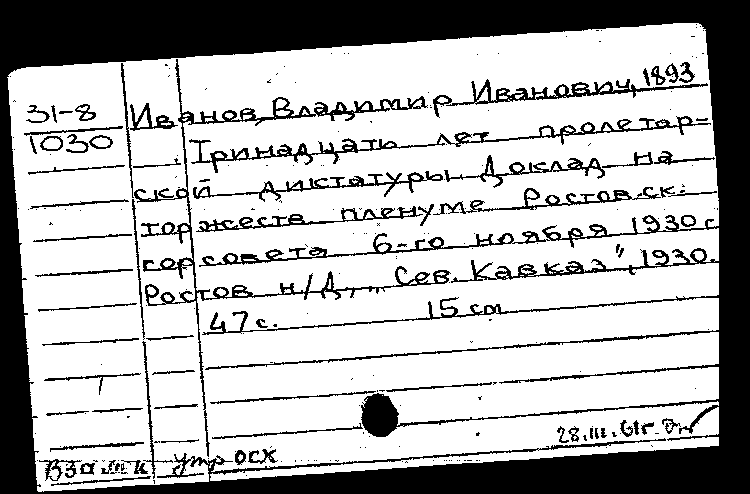 31-8
1030
Иванов, Владимир Иванович, 1893
Тринадцать лет пролетар=
ской диктатуры. Доклад на
торжеств. пленуме Ростов.ск.
горсовета 6-го ноября 1930 г.
Ростов н/Д., „Сев. Кавказ", 1930.
47 с. 15 см
28.III.61г.
Взамк утр осх